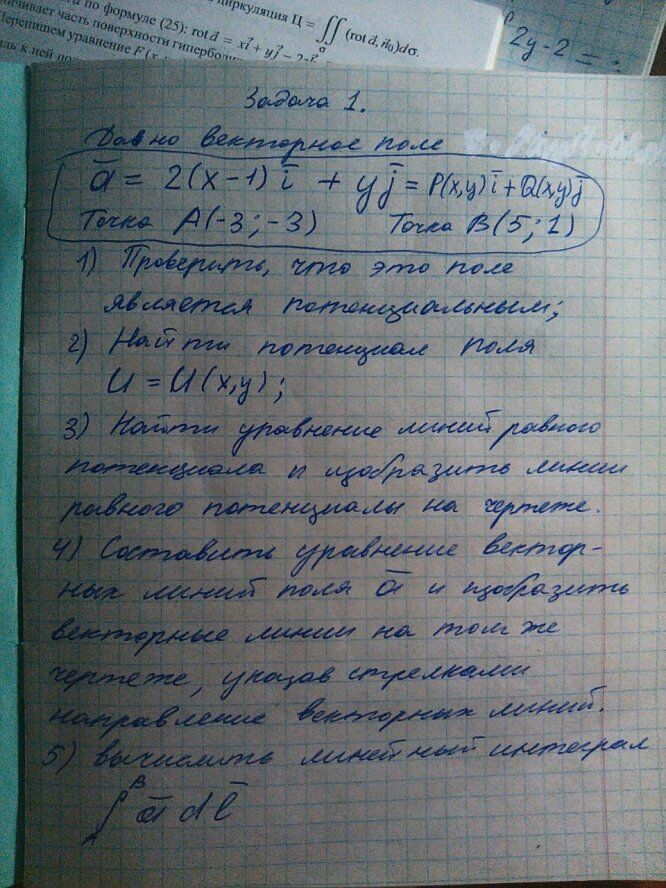 циркуляция Ц = ∬ (rot a⃗, n⃗₀)dσ.
по формуле (25): rot a⃗ = xi⃗ + yj⃗ – 2
σ
ничивает часть поверхности гиперболи
Перепишем уравнение F(x,
ль к ней
2y-2=
Задача 1.
Дано векторное поле
a̅ = 2(x-1) i̅ + y j̅ = P(x,y) i̅ + Q(x,y) j̅
Точка A(-3;-3) Точка B(5;1)
1) Проверить, что это поле
является потенциальным;
2) Найти потенциал поля
U = U(x,y);
3) Найти уравнение линий равного
потенциала и изобразить линии
равного потенциалы на чертеже.
4) Составить уравнение вектор-
ных линий поля a̅ и изобразить
векторные линии на том же
чертеже, указав стрелками
направление векторных линий.
5) вычислить линейный интеграл
B
∫ a̅ d l̅
A